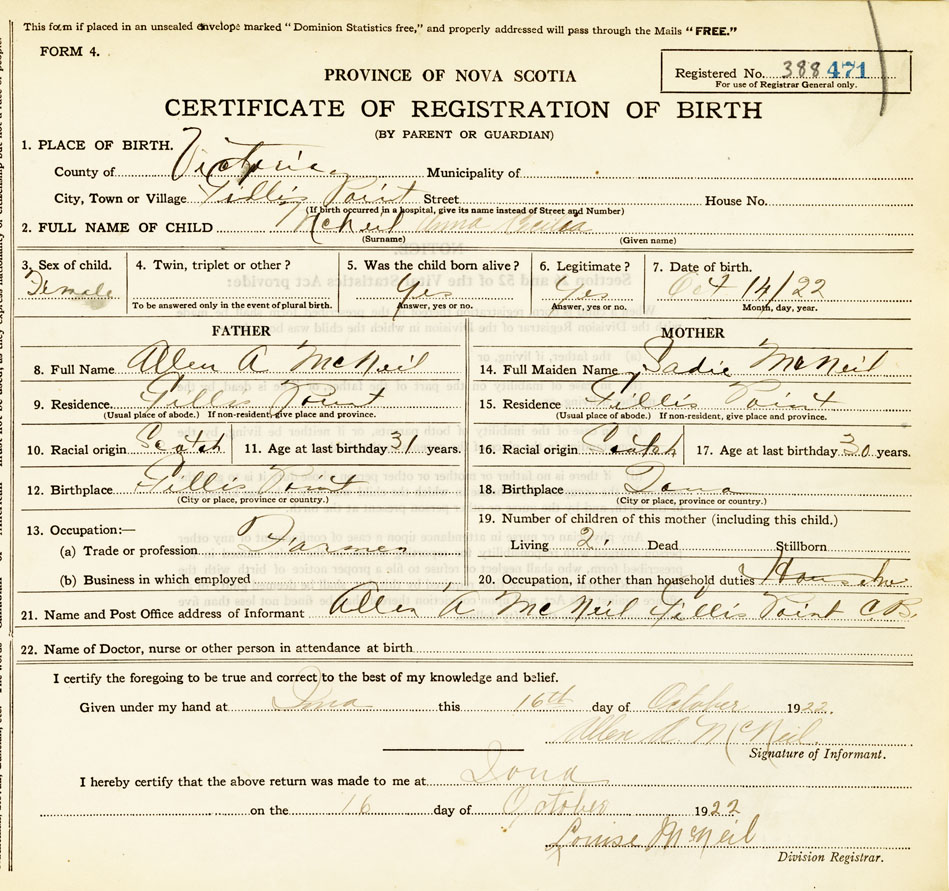 This form if placed in an unsealed envelope marked "Dominion Statistics free," and properly addressed will pass through the Mails "FREE."
FORM 4.
Registered No. 388 471
For use of Registrar General only.
PROVINCE OF NOVA SCOTIA
CERTIFICATE OF REGISTRATION OF BIRTH
(BY PARENT OR GUARDIAN)
1. PLACE OF BIRTH.
County of Victoria Municipality of
City, Town or Village Gillis Point Street House No.
(If birth occurred in a hospital, give its name instead of Street and Number)
2. FULL NAME OF CHILD McNeil Anna Cecilia
(Surname) (Given name)
3. Sex of child. 4. Twin, triplet or other? 5. Was the child born alive? 6. Legitimate? 7. Date of birth.
Female Yes Yes Oct 14/22
To be answered only in the event of plural birth. Answer, yes or no. Answer, yes or no. Month, day, year.
FATHER MOTHER
8. Full Name Allen A McNeil 14. Full Maiden Name Sadie McNeil
9. Residence Gillis Point 15. Residence Gillis Point
(Usual place of abode.) If non-resident, give place and province. (Usual place of abode.) If non-resident, give place and province.
10. Racial origin Scotch 11. Age at last birthday 31 years. 16. Racial origin Scotch 17. Age at last birthday 30 years.
12. Birthplace Gillis Point 18. Birthplace Iona
(City or place, province or country.) (City or place, province or country.)
13. Occupation:— 19. Number of children of this mother (including this child.)
(a) Trade or profession Farmer Living 2 Dead Stillborn
(b) Business in which employed 20. Occupation, if other than household duties
21. Name and Post Office address of Informant Allen A McNeil Gillis Point C.B.
22. Name of Doctor, nurse or other person in attendance at birth
I certify the foregoing to be true and correct to the best of my knowledge and belief.
Given under my hand at Iona this 16th day of October 1922.
Allen A McNeil
Signature of Informant.
I hereby certify that the above return was made to me at Iona
on the 16 day of October 1922
Louise McNeil
Division Registrar.